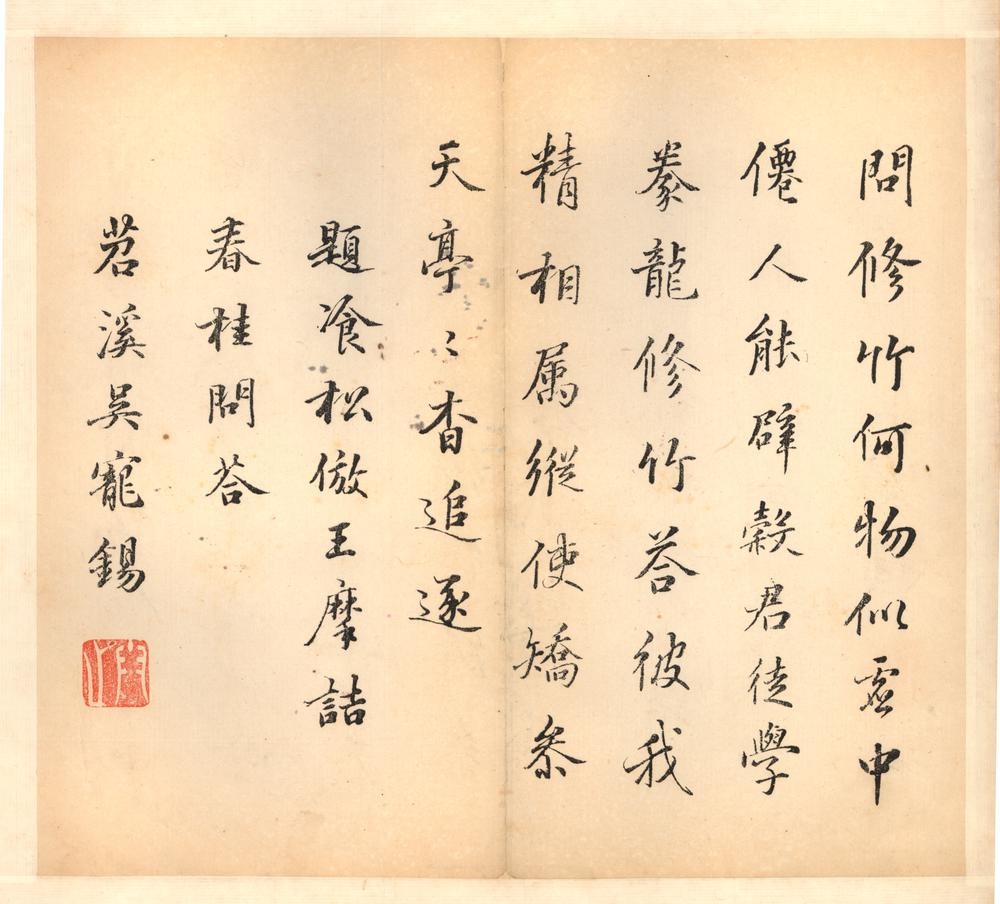 問修竹何物似虛中
僊人能辟穀君徒學
豢龍修竹荅彼我
精相屬縱使矯叅
天亭〻香追逐
題飡松倣王摩詰
春桂問荅
苕溪吳寵錫